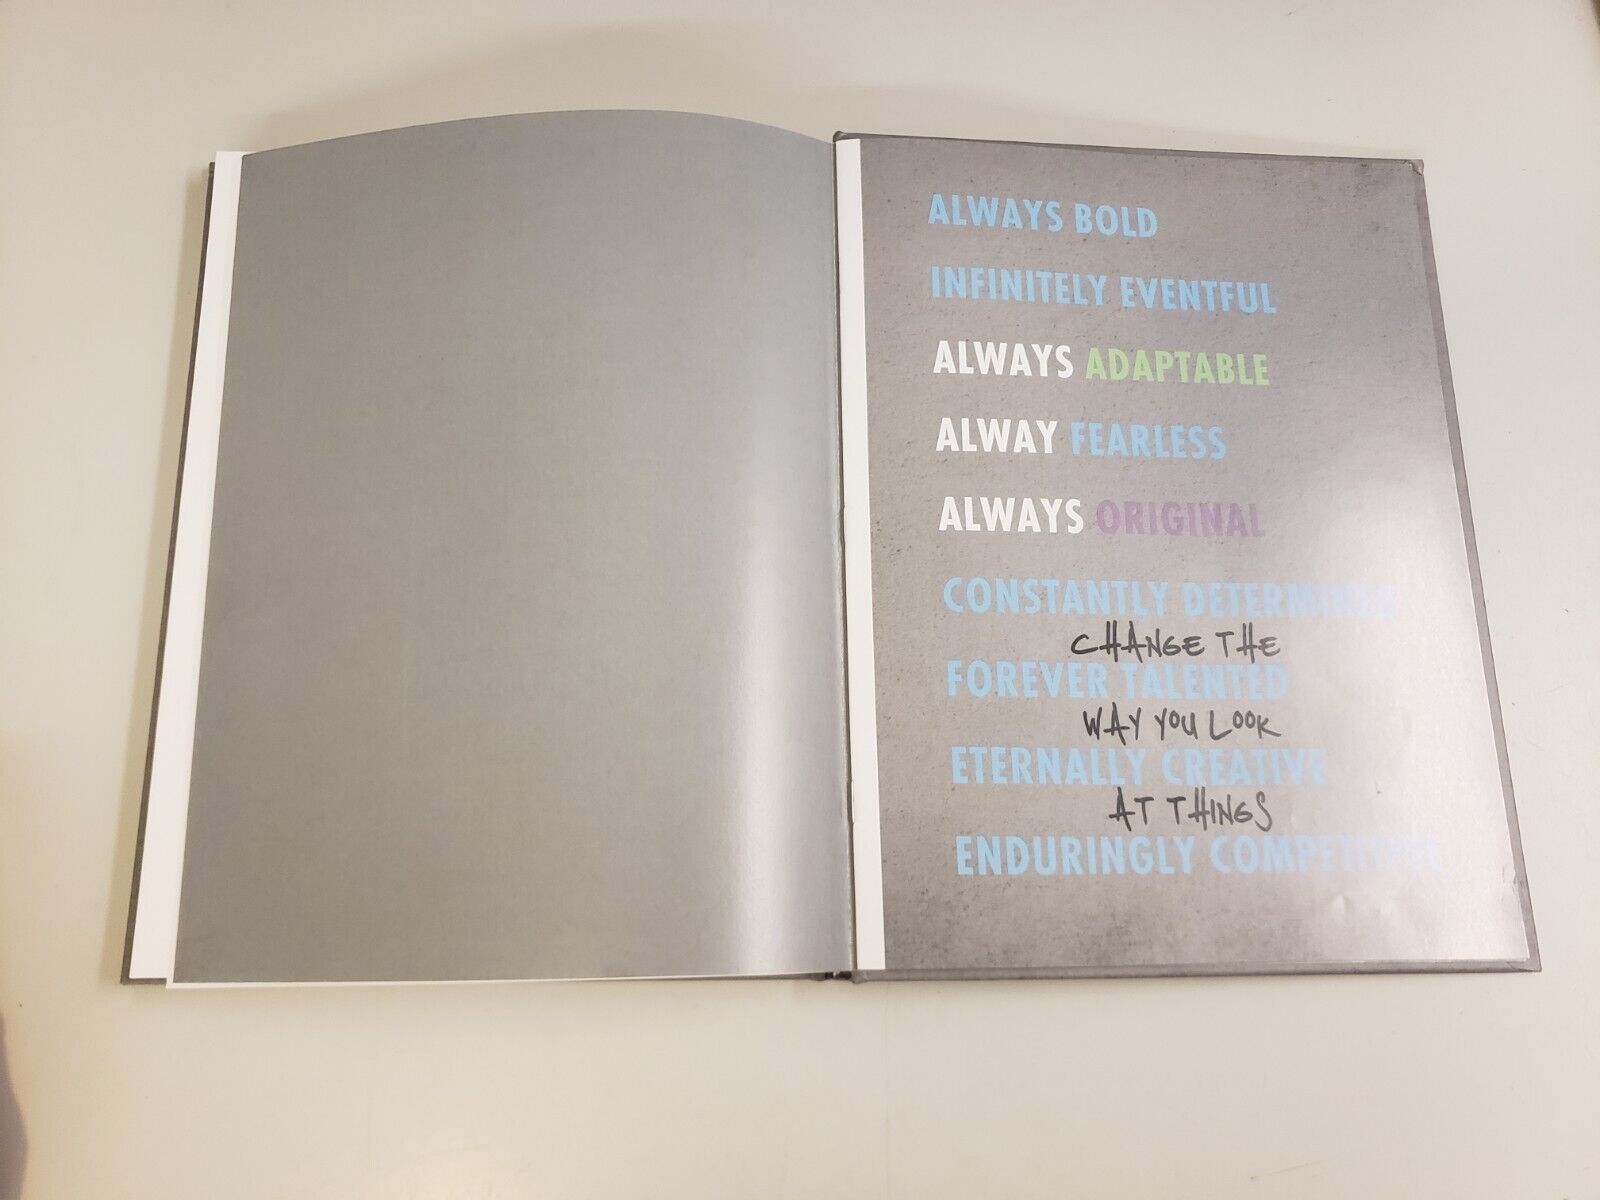 ALWAYS BOLD
INFINITELY EVENTFUL
ALWAYS ADAPTABLE
ALWAY FEARLESS
ALWAYS ORIGINAL
CONSTANTLY DETERMINED
CHANGE THE
FOREVER TALENTED
WAY YOU LOOK
ETERNALLY CREATIVE
AT THINGS
ENDURINGLY COMPETITIVE